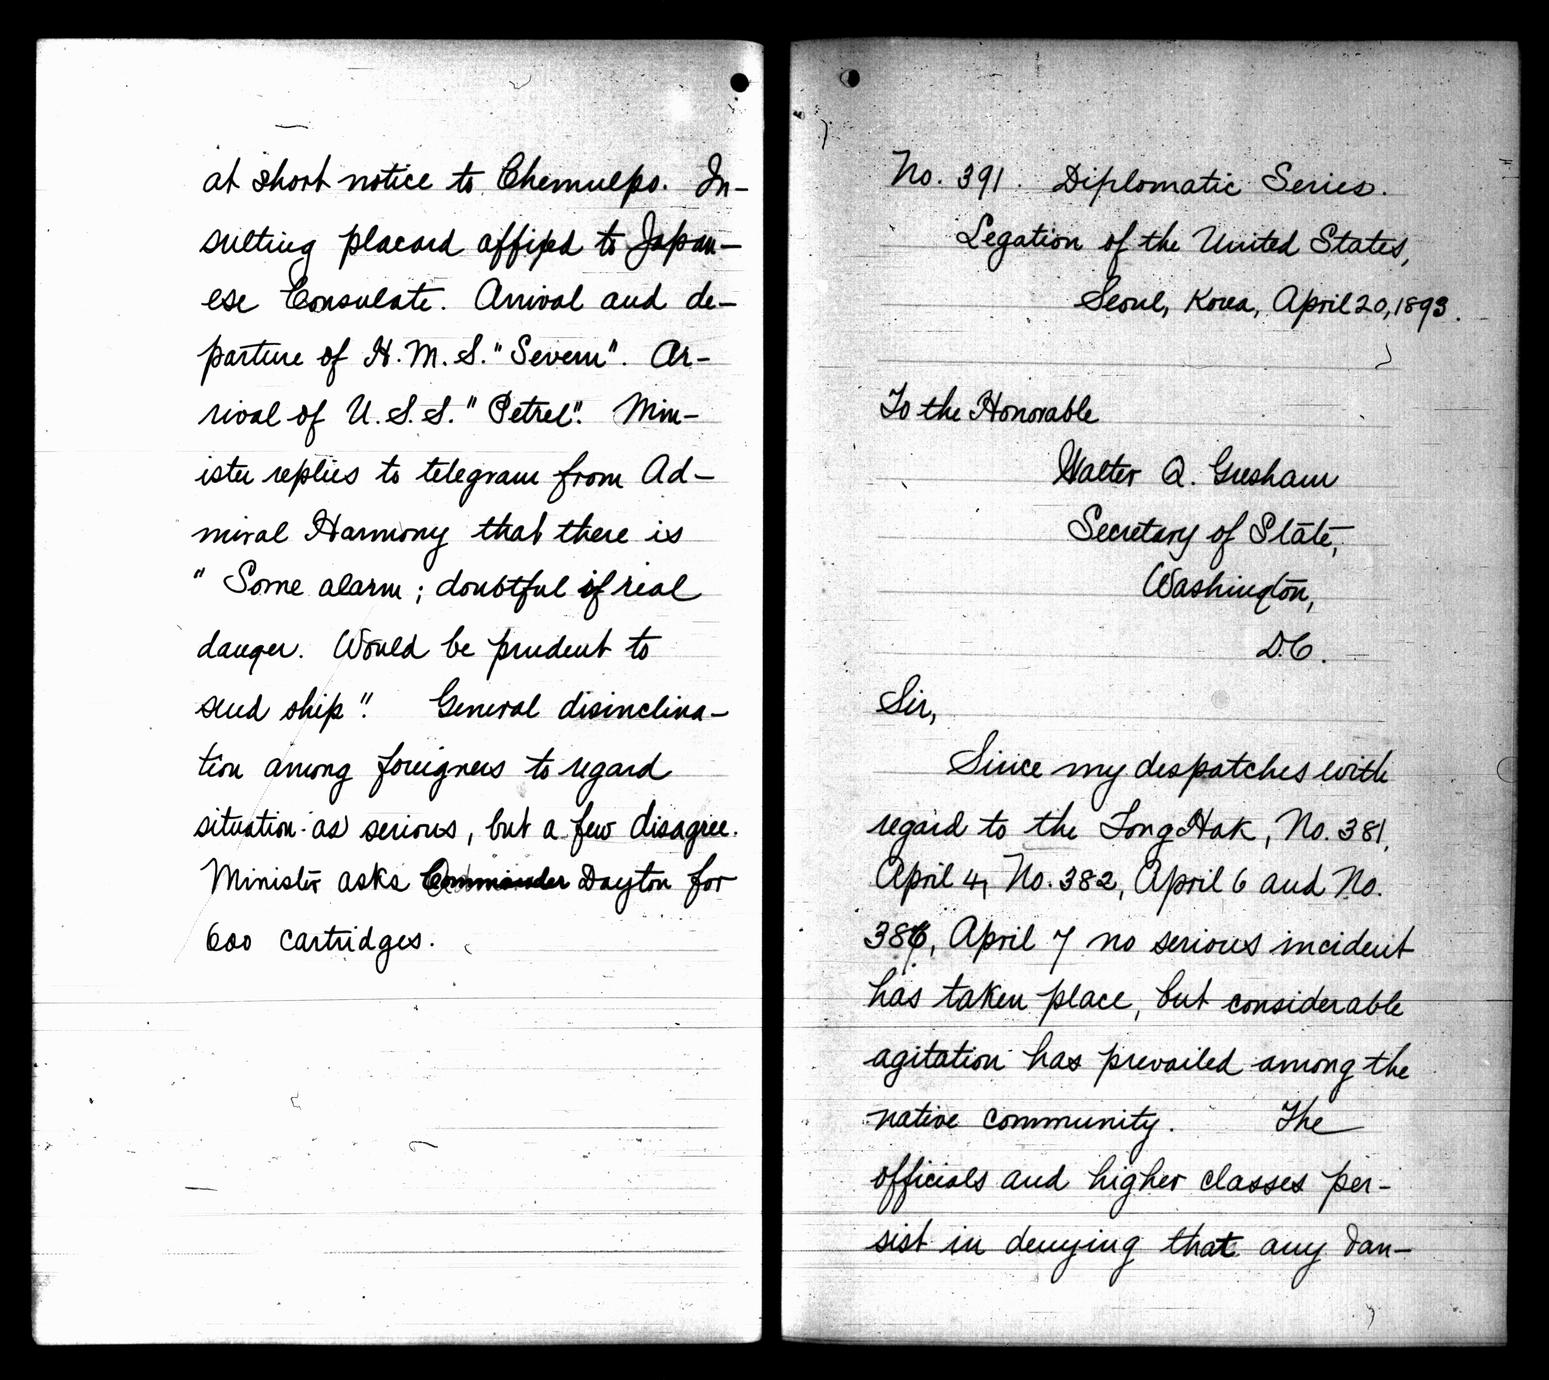 at short notice to Chemulpo. In-
sulting placard affixed to Japan-
ese Consulate. Arrival and de-
parture of H.M.S. "Severn". Ar-
rival of U.S.S. "Petrel". Min-
ister replies to telegram from Ad-
miral Harmony that there is
"Some alarm; doubtful if real
danger. Would be prudent to
send ship". General disinclina-
tion among foreigners to regard
situation as serious, but a few disagree.
Minister asks Commander Dayton for
600 cartridges.
No. 391. Diplomatic Series.
Legation of the United States,
Seoul, Korea, April 20, 1893.
To the Honorable
Walter Q. Gresham
Secretary of State,
Washington,
D.C.
Sir,
Since my despatches with
regard to the Tong Hak, No. 381,
April 4, No. 382, April 6 and No.
386, April 7 no serious incident
has taken place, but considerable
agitation has prevailed among the
native community. The
officials and higher classes per-
sist in denying that any dan-